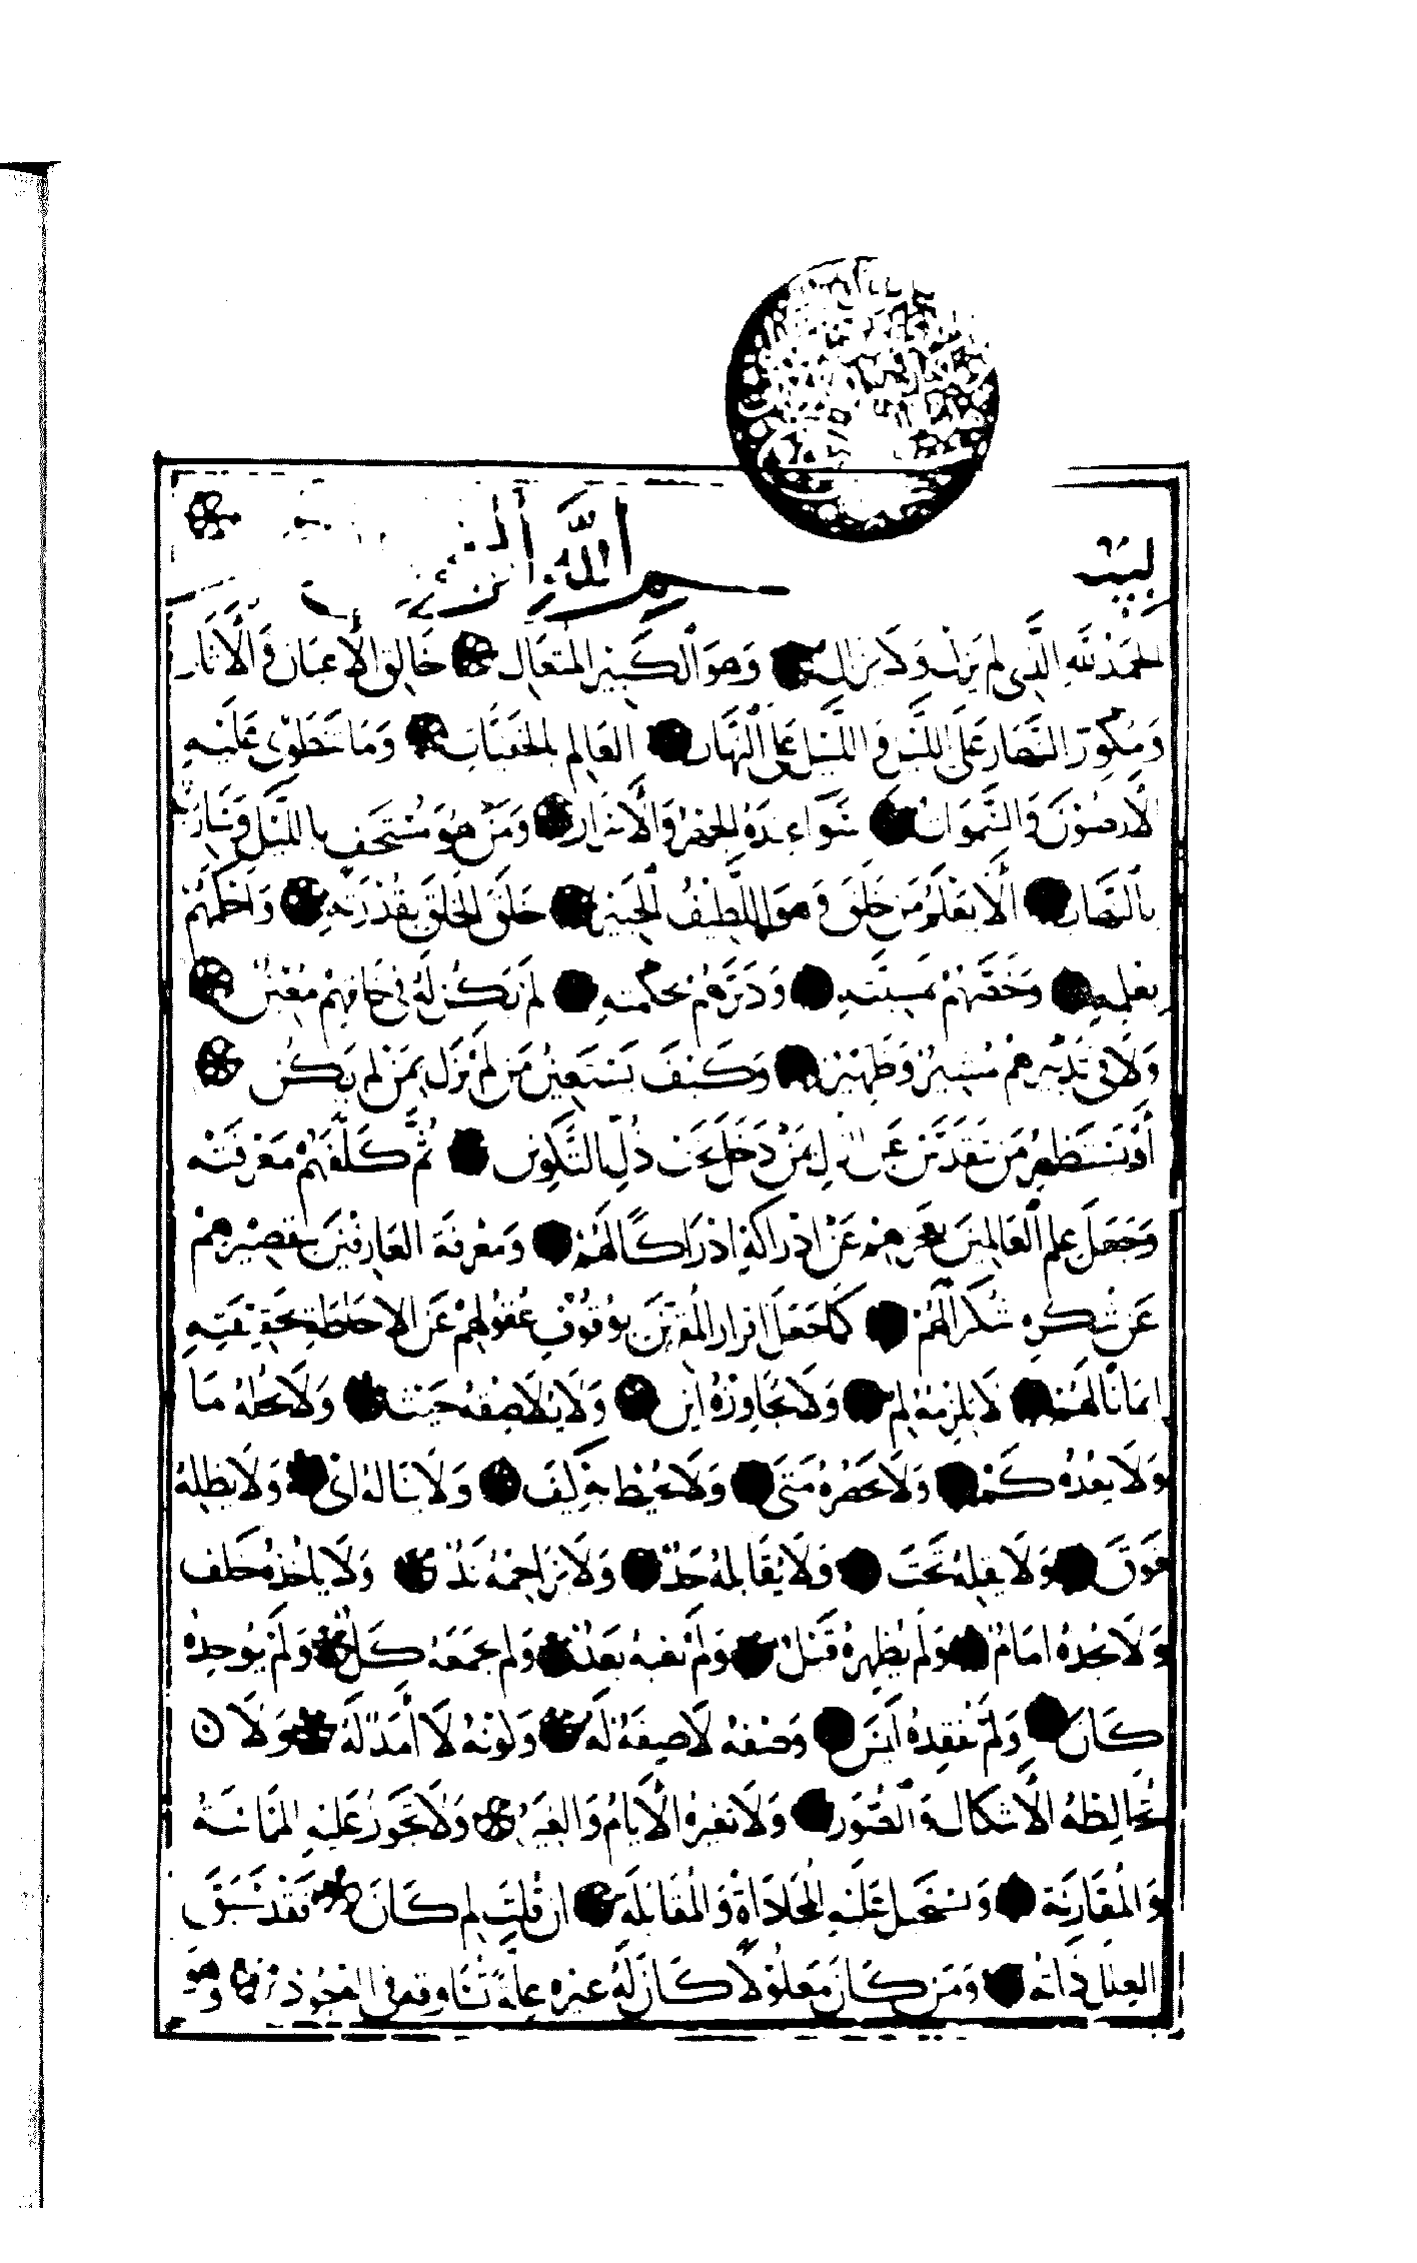 بسم الله الرحمن
الحَمْدُ للهِ الَّذِي لَمْ يَزَلْ وَلَا يَزَالُ وَهُوَ الْكَبِيْرُ المُتَعَالِ خَالِقِ الْأَعْيَانِ وَالْآثَارِ
وَمُكَوِّرِ النَّهَارِ عَلَى اللَّيْلِ وَ اللَّيْلِ عَلَى النَّهَارِ العَالِمِ بِالخَفِيَّاتِ وَمَا تَنْطَوِي عَلَيْهِ
الْأَرَضُوْنَ وَالسَّمَوَاتُ سَوَاءٌ عِنْدَهُ الجَهْرُ وَالْأَسْرَارُ وَمَنْ هُوَ مُسْتَخْفٍ بِاللَّيْلِ وَسَارِبٌ
بِالنَّهَارِ أَلَا يَعْلَمُ مَنْ خَلَقَ وَهُوَ اللَّطِيْفُ الْخَبِيْرُ خَلَقَ الخَلْقَ بِقُدْرَتِهِ وَأَحْكَمَهُمْ
بِعِلْمِهِ وَخَصَّهُمْ بِمَشِيَّتِهِ وَدَبَّرَهُمْ بِحِكْمَتِهِ لَمْ يَكُنْ لَهُ فِي خَلْقِهِمْ مُعِيْنٌ
وَلَا فِي تَدْبِيْرِهِمْ مُشِيْرٌ وَظَهِيْرٌ وَكَيْفَ يَسْتَعِيْنُ مَنْ لَمْ يَزَلْ بِمَنْ لَمْ يَكُنْ
أَوْ يَسْتَظْهِرُ مَنْ تَقَدَّسَ عَنِ الذُّلِّ بِمَنْ دَخَلَ تَحْتَ ذُلِّ التَّكْوِيْنِ ثُمَّ كَلَّفَهُمْ مَعْرِفَتَهُ
وَجَعَلَ عِلْمَ الْعَالِمِيْنَ بِعَجْزِهِمْ عَنْ إِدْرَاكِهِ إِدْرَاكًا لَهُمْ وَمَعْرِفَةَ العَارِفِيْنَ بِتَقْصِيْرِهِمْ
عَنْ شُكْرِهِ شُكْرًا لَهُمْ كَمَا جَعَلَ إِقْرَارَ المُقِرِّيْنَ بِوُقُوْفِ عُقُوْلِهِمْ عَنِ الإِحَاطَةِ بِحَقِيْقَتِهِ
إِيْمَانًا لَهُمْ لَا يَلْزَمُهُ لِمَ وَلَا يُجَاوِزُهُ أَيْنَ وَلَا يُلَاصِقُهُ حَيْثُ وَلَا يَحُلُّهُ مَا
وَلَا يَعُدُّهُ كَمْ وَلَا يَحْصُرُهُ مَتَى وَلَا يُحِيْطُ بِهِ كَيْفَ وَلَا يَنَالُهُ أَنَّى وَلَا يُظِلُّهُ
فَوْقَ وَلَا يُقِلُّهُ تَحْتَ وَلَا يُقَابِلُهُ حَدٌّ وَلَا يُزَاحِمُهُ نِدٌّ وَلَا يَأْخُذُهُ خَلْفَ
وَلَا يَحُدُّهُ أَمَامُ وَلَمْ يُظْهِرْهُ قَبْلُ وَلَمْ يُفْنِهِ بَعْدُ وَلَمْ يَجْمَعْهُ كُلٌّ وَلَمْ يُوْجِدْهُ
كَانَ وَلَمْ يَفْقِدْهُ لَيْسَ وَصْفُهُ لَا صِفَةَ لَهُ وَكَوْنُهُ لَا أَمَدَ لَهُ وَلَا
تُخَالِطُهُ الْأَشْكَالُ وَالصُّوَرُ وَلَا تُغَيِّرُهُ الْأَيَّامُ وَالغِيَرُ وَلَا تَجُوْزُ عَلَيْهِ المُمَاسَّةُ
وَالمُقَارَنَةُ وَتَسْتَحِيْلُ عَلَيْهِ المُحَاذَاةُ وَالمُقَابَلَةُ إِنْ قُلْتَ لِمَ كَانَ فَقَدْ سَبَقَ
العِلَلَ ذَاتُهُ وَمَنْ كَانَ مَعْلُوْلًا كَانَ لَهُ غَيْرُهُ عِلَّةً تُسَاوِقُهُ فِي الوُجُوْدِ وَهُوَ